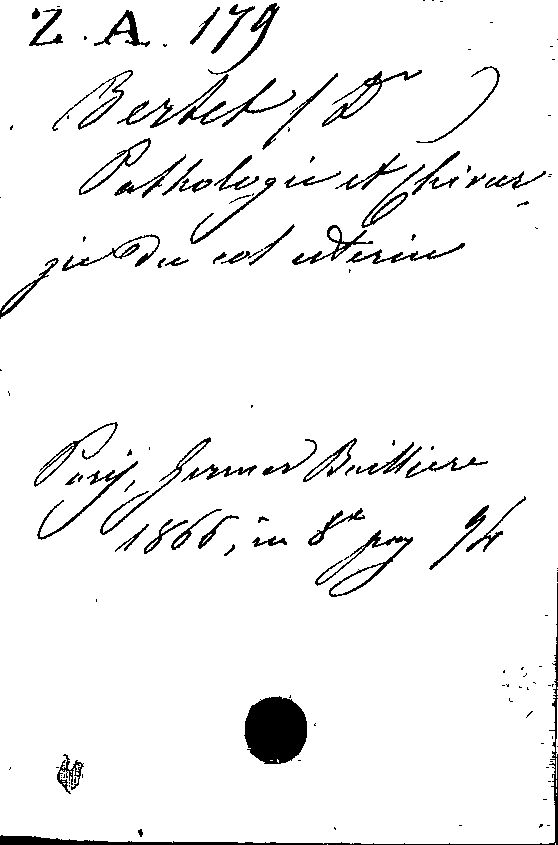 Z. A. 179
Bertet (Dr )
Pathologie et Chirur-
gie du col uterin
Paris, Germer Baillière
1866, in 8° pag 94